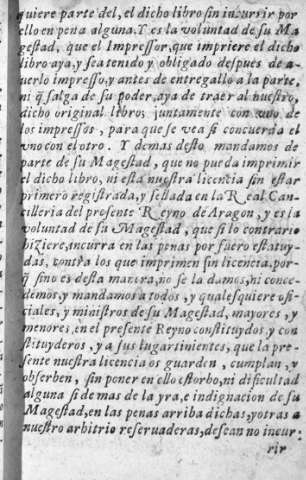 quiere parte del, el dicho libro sin incurrir por
ello en pena alguna. Y es la voluntad de su Ma
gestad, que el Impressor, que impriere el dicho
libro aya, y sea tenido y obligado despues de a-
uerlo impresso, y antes de entregallo a la parte,
ni q̃ salga de su poder, aya de traer al nuestro,
dicho original libros juntamente con uno de
los impressos, para que se vea si concuerda el
vno con el otro. Y demas desto mandamos de
parte de su Magestad, que no pueda imprimir
el dicho libro, ni esta nuestra licencia sin estar
primero registrada, y sellada en la Real Can-
cilleria del presente Reyno de Aragon, y es la
voluntad de su Magestad, que si lo contrario
hiziere, incurra en las penas por fuero estatuy-
das, contra los que imprimen sin licencia, por-
q̃ sino es desta manera, no se la damos, ni conce-
demos, y mandamos a todos, y qualesquiere ofi-
ciales, y ministros de su Magestad, mayores, y
menores en el presente Reyno constituydos, y con
stituyderos, y a sus lugartinientes, que la pre-
sente nuestra licencia os guarden, cumplan, y
obserben, sin poner en ello estorbo, ni dificultad
alguna si de mas de la yra, e indignacion de su
Magestad, en las penas arriba dichas, y otras a
nuestro arbitrio reseruaderas, desean no incur-
rir